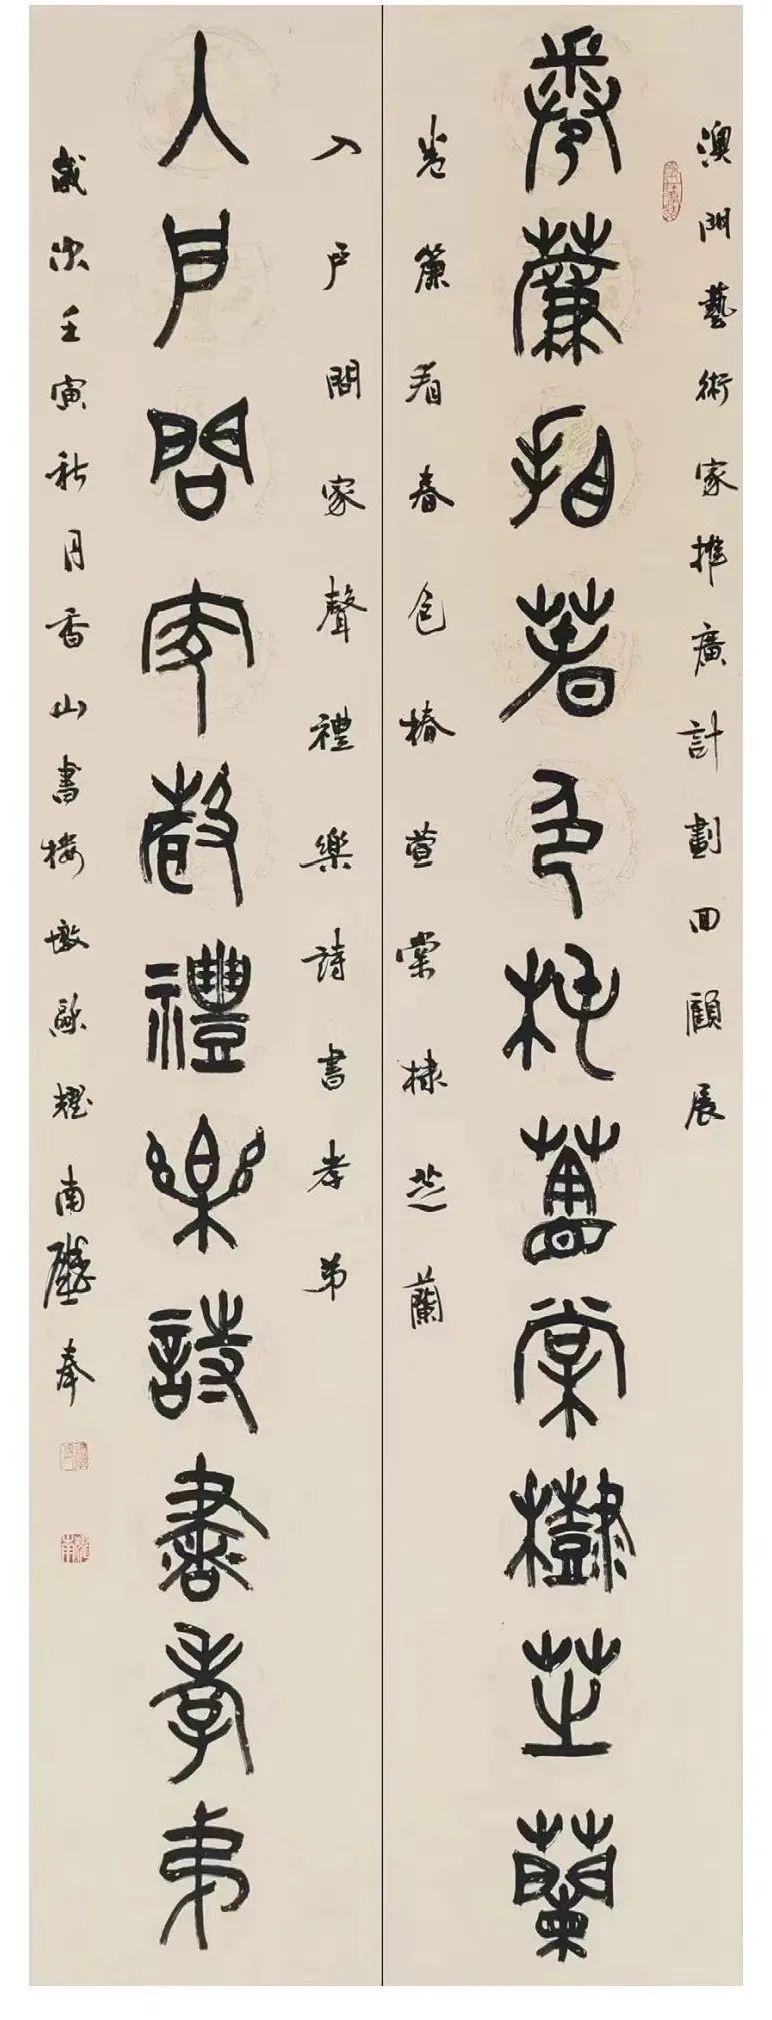 澳門藝術家推廣計劃回顧展
卷簾看春色椿萱棠棣芝蘭
卷簾看春色椿萱棠棣芝蘭
入戶問家聲禮樂詩書孝弟
入戶問家聲禮樂詩書孝弟
歲次壬寅秋月香山書樓墩 耀南 奉